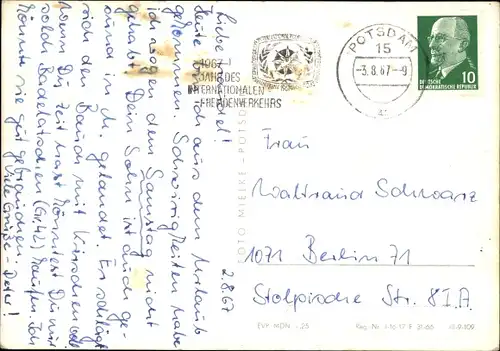 Liebe
Heute bin ich aus dem Urlaub
gekommen. Schwierigkeiten habe
ich wegen dem Samstag nicht
gehabt. Dein Sohn ist auch ge-
sund in gelandet. Er schlägt
sich den Bauch mit Kirschen voll
Wenn Du Zeit hast könntest Du mir
solche Badelatschen (Gr. 42) kaufen. Ich
könnte sie gut gebrauchen.
Viele Grüße - Dater!
2.8.67
1967
JAHR DES
INTERNATIONALEN
FREMDENVERKEHRS
POTSDAM
15
-3.8.67-9
10
DEUTSCHE
DEMOKRATISCHE REPUBLIK
FOTO MIELKE - POTSDAM
Frau
Waltraud Schwarz
1071 Berlin 71
Stolpische Str. 8 I.A.